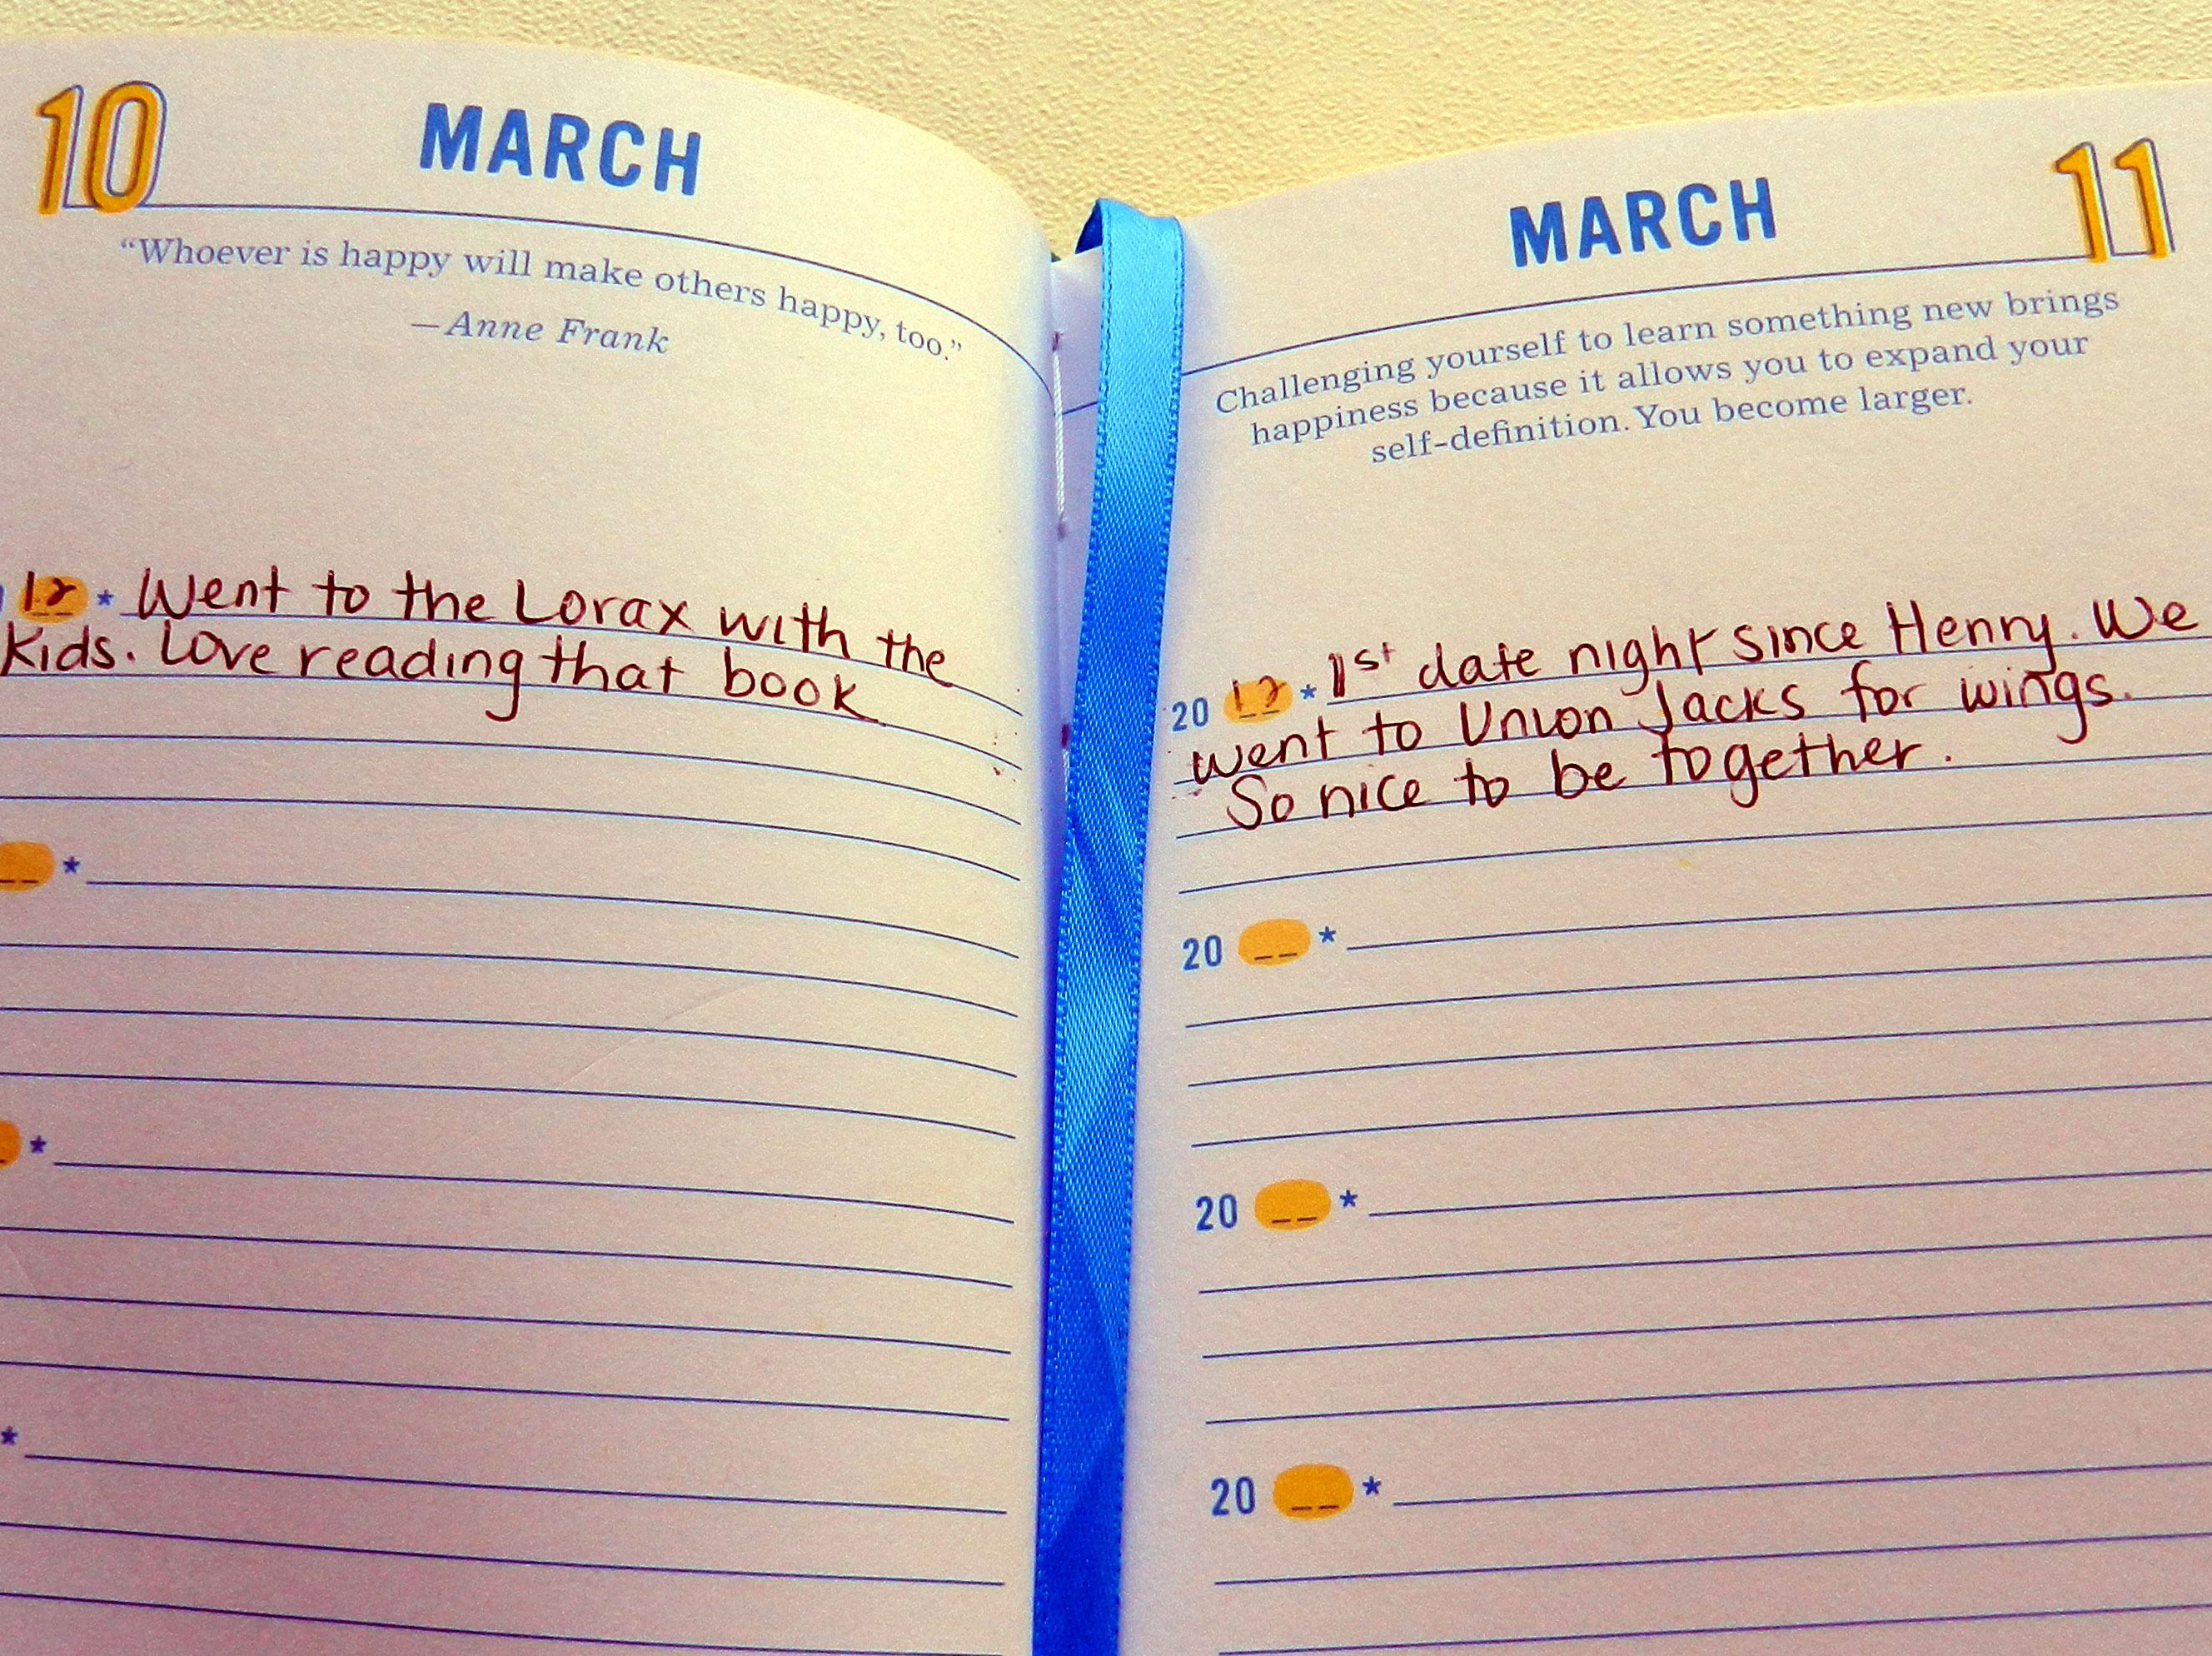 10 MARCH
“Whoever is happy will make others happy, too.”
—Anne Frank
12 * Went to the Lorax with the
Kids. Love reading that book.
*
*
*
MARCH 11
Challenging yourself to learn something new brings
happiness because it allows you to expand your
self-definition. You become larger.
20 12 * 1st date night since Henry. We
went to Union Jacks for wings.
So nice to be together.
20 __ *
20 __ *
20 __ *